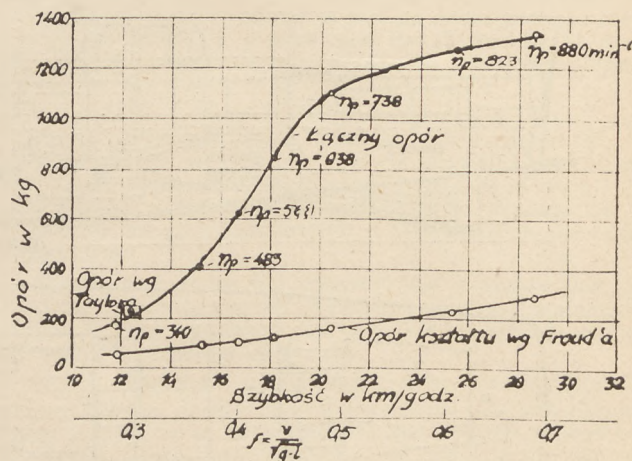 1400
1200
1000
800
600
400
200
0
Opór w kg
np=880 min-1
np=823
np=738
Łączny opór
np=638
np=483
Opór wg
Taylora
np=340
Opór kształtu wg Froud'a
10 12 14 16 18 20 22 24 26 28 30 32
Szybkość w km/godz.
0,3 0,4 0,5 0,6 0,7
f = v/√g·l